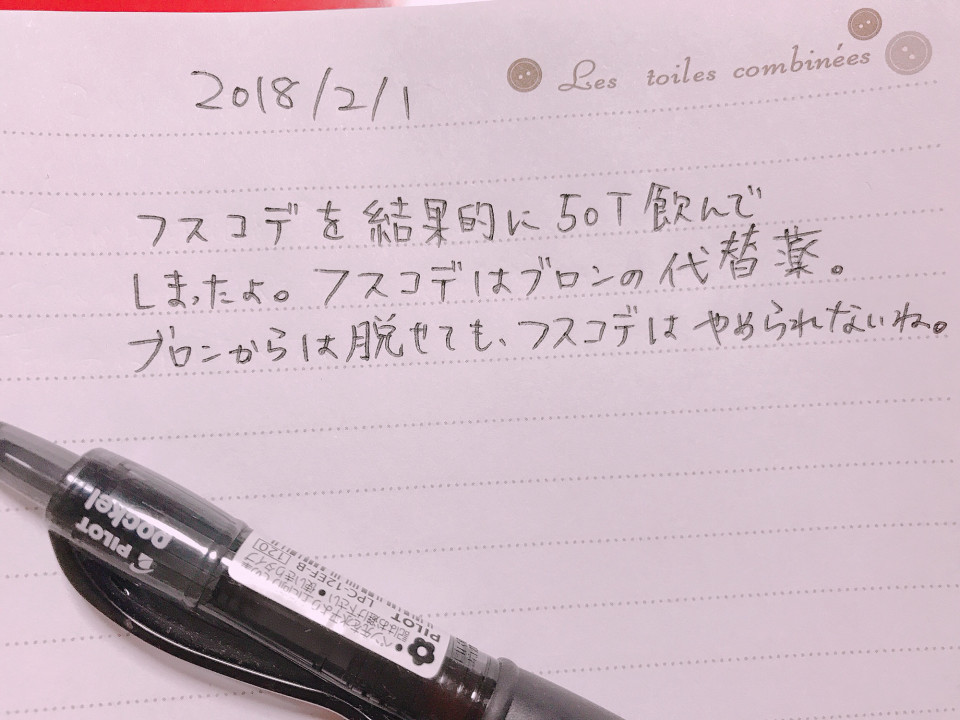 Les toiles combinées
2018/2/1
フスコデを結果的に50T飲んで
しまったよ。フスコデはブロンの代替薬。
ブロンからは脱せても、フスコデはやめられないね。
PILOT
pockel
LPC-12EF-B [120]
PILOT